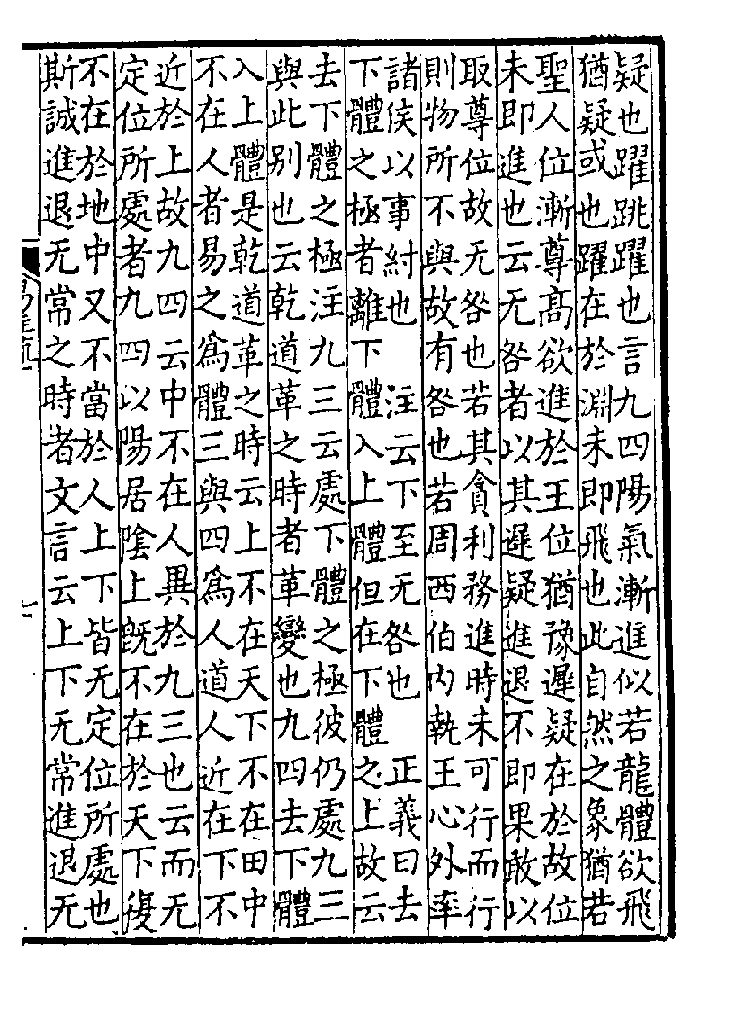 疑也躍跳躍也言九四陽氣漸進似若龍體欲飛
猶疑或也躍在於淵未即飛也此自然之象猶若
聖人位漸尊高欲進於王位猶豫遲疑在於故位
未即進也云无咎者以其遲疑進退不即果敢以
取尊位故无咎也若其貪利務進時未可行而行
則物所不與故有咎也若周西伯內執王心外率
諸侯以事紂也　注云下至无咎也　正義曰去
下體之極者離下體入上體但在下體之上故云
去下體之極注九三云處下體之極彼仍處九三
與此別也云乾道革之時者革變也九四去下體
入上體是乾道革之時云上不在天下不在田中
不在人者易之為體三與四為人道人近在下不
近於上故九四云中不在人異於九三也云而无
定位所處者九四以陽居陰上既不在於天下復
不在於地中又不當於人上下皆无定位所處也
斯誠進退无常之時者文言云上下无常進退无